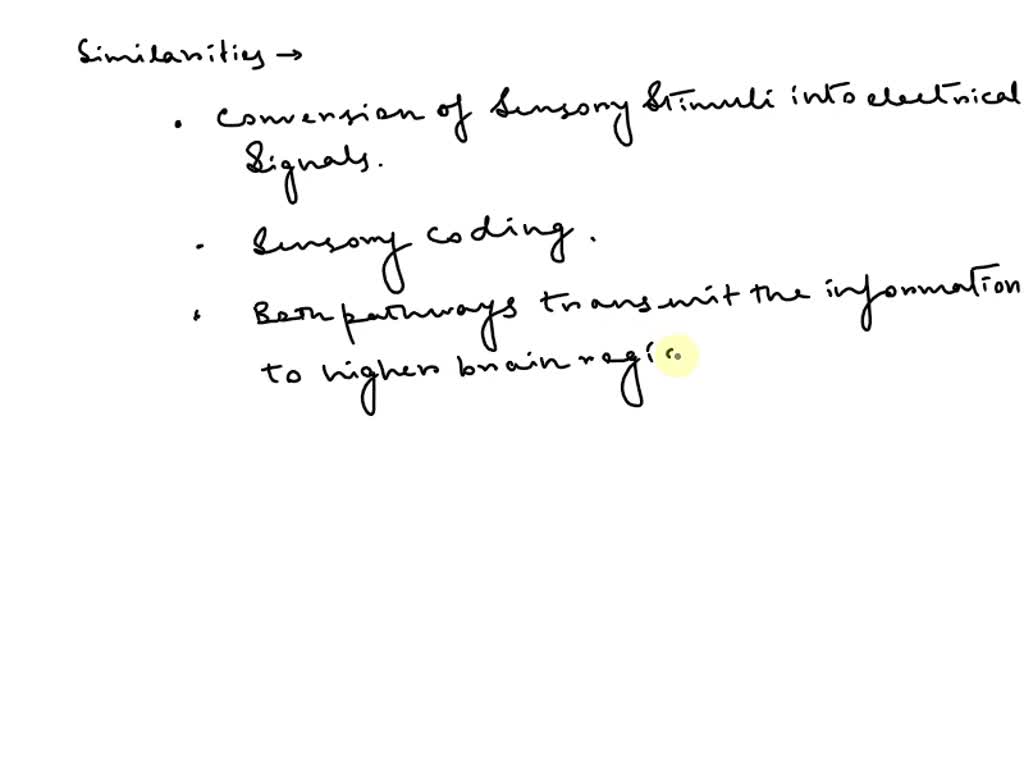 Similarities →
. conversion of Sensory Stimuli into electrical
Signals.
. Sensory coding.
. Both pathways transmit the information
to higher brain regi